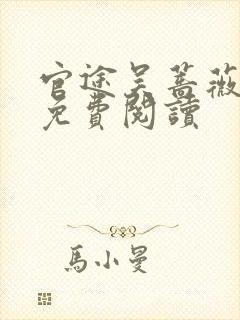 官途吳薔薇
免費閱讀
馬小曼